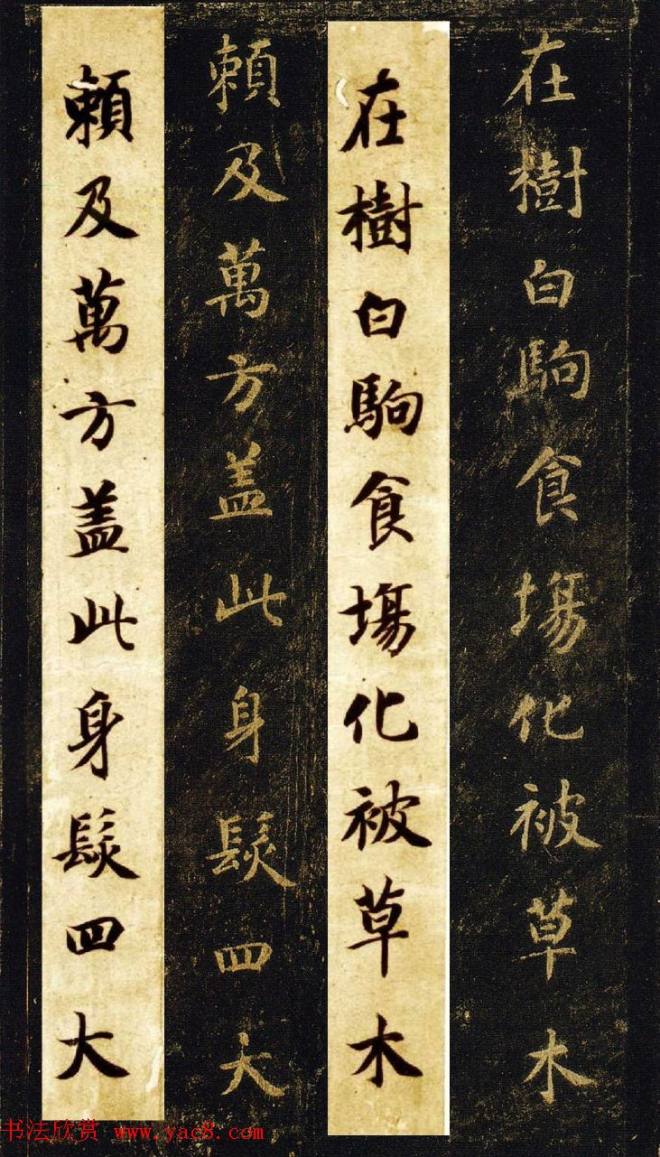 在樹白駒食場化被草木
在樹白駒食場化被草木
賴及萬方盖此身髮四大
賴及萬方盖此身髮四大
书法欣赏 www.yac8.com